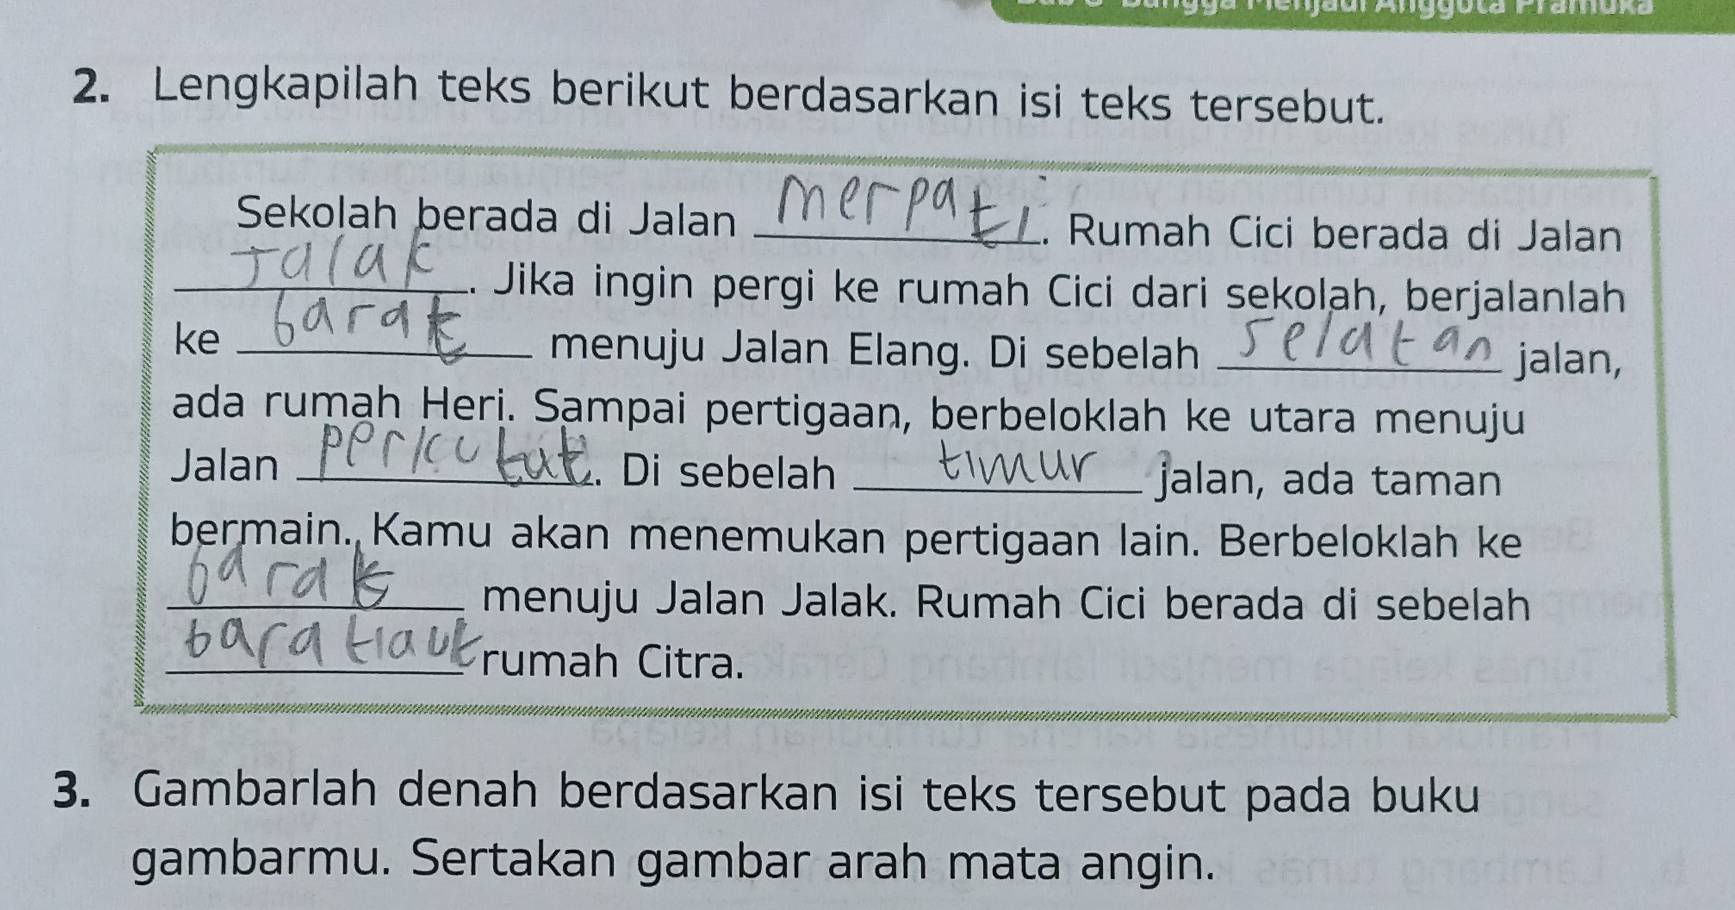 Bangga Menjadi Anggota Pramuka
2. Lengkapilah teks berikut berdasarkan isi teks tersebut.
Sekolah berada di Jalan merpati. Rumah Cici berada di Jalan
Jalak. Jika ingin pergi ke rumah Cici dari sekolah, berjalanlah
ke barat menuju Jalan Elang. Di sebelah selatan jalan,
ada rumah Heri. Sampai pertigaan, berbeloklah ke utara menuju
Jalan perkutut. Di sebelah timur jalan, ada taman
bermain. Kamu akan menemukan pertigaan lain. Berbeloklah ke
barak menuju Jalan Jalak. Rumah Cici berada di sebelah
baratlaut rumah Citra.
3. Gambarlah denah berdasarkan isi teks tersebut pada buku
gambarmu. Sertakan gambar arah mata angin.